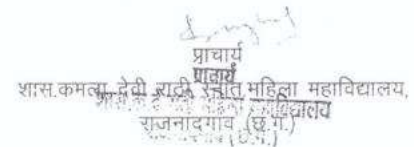 प्राचार्य
प्राचार्य
शास.कमला देवी राठी स्नात. महिला महाविद्यालय,
महाविद्यालय
राजनादगांव (छ.ग.)
(छ.ग.)